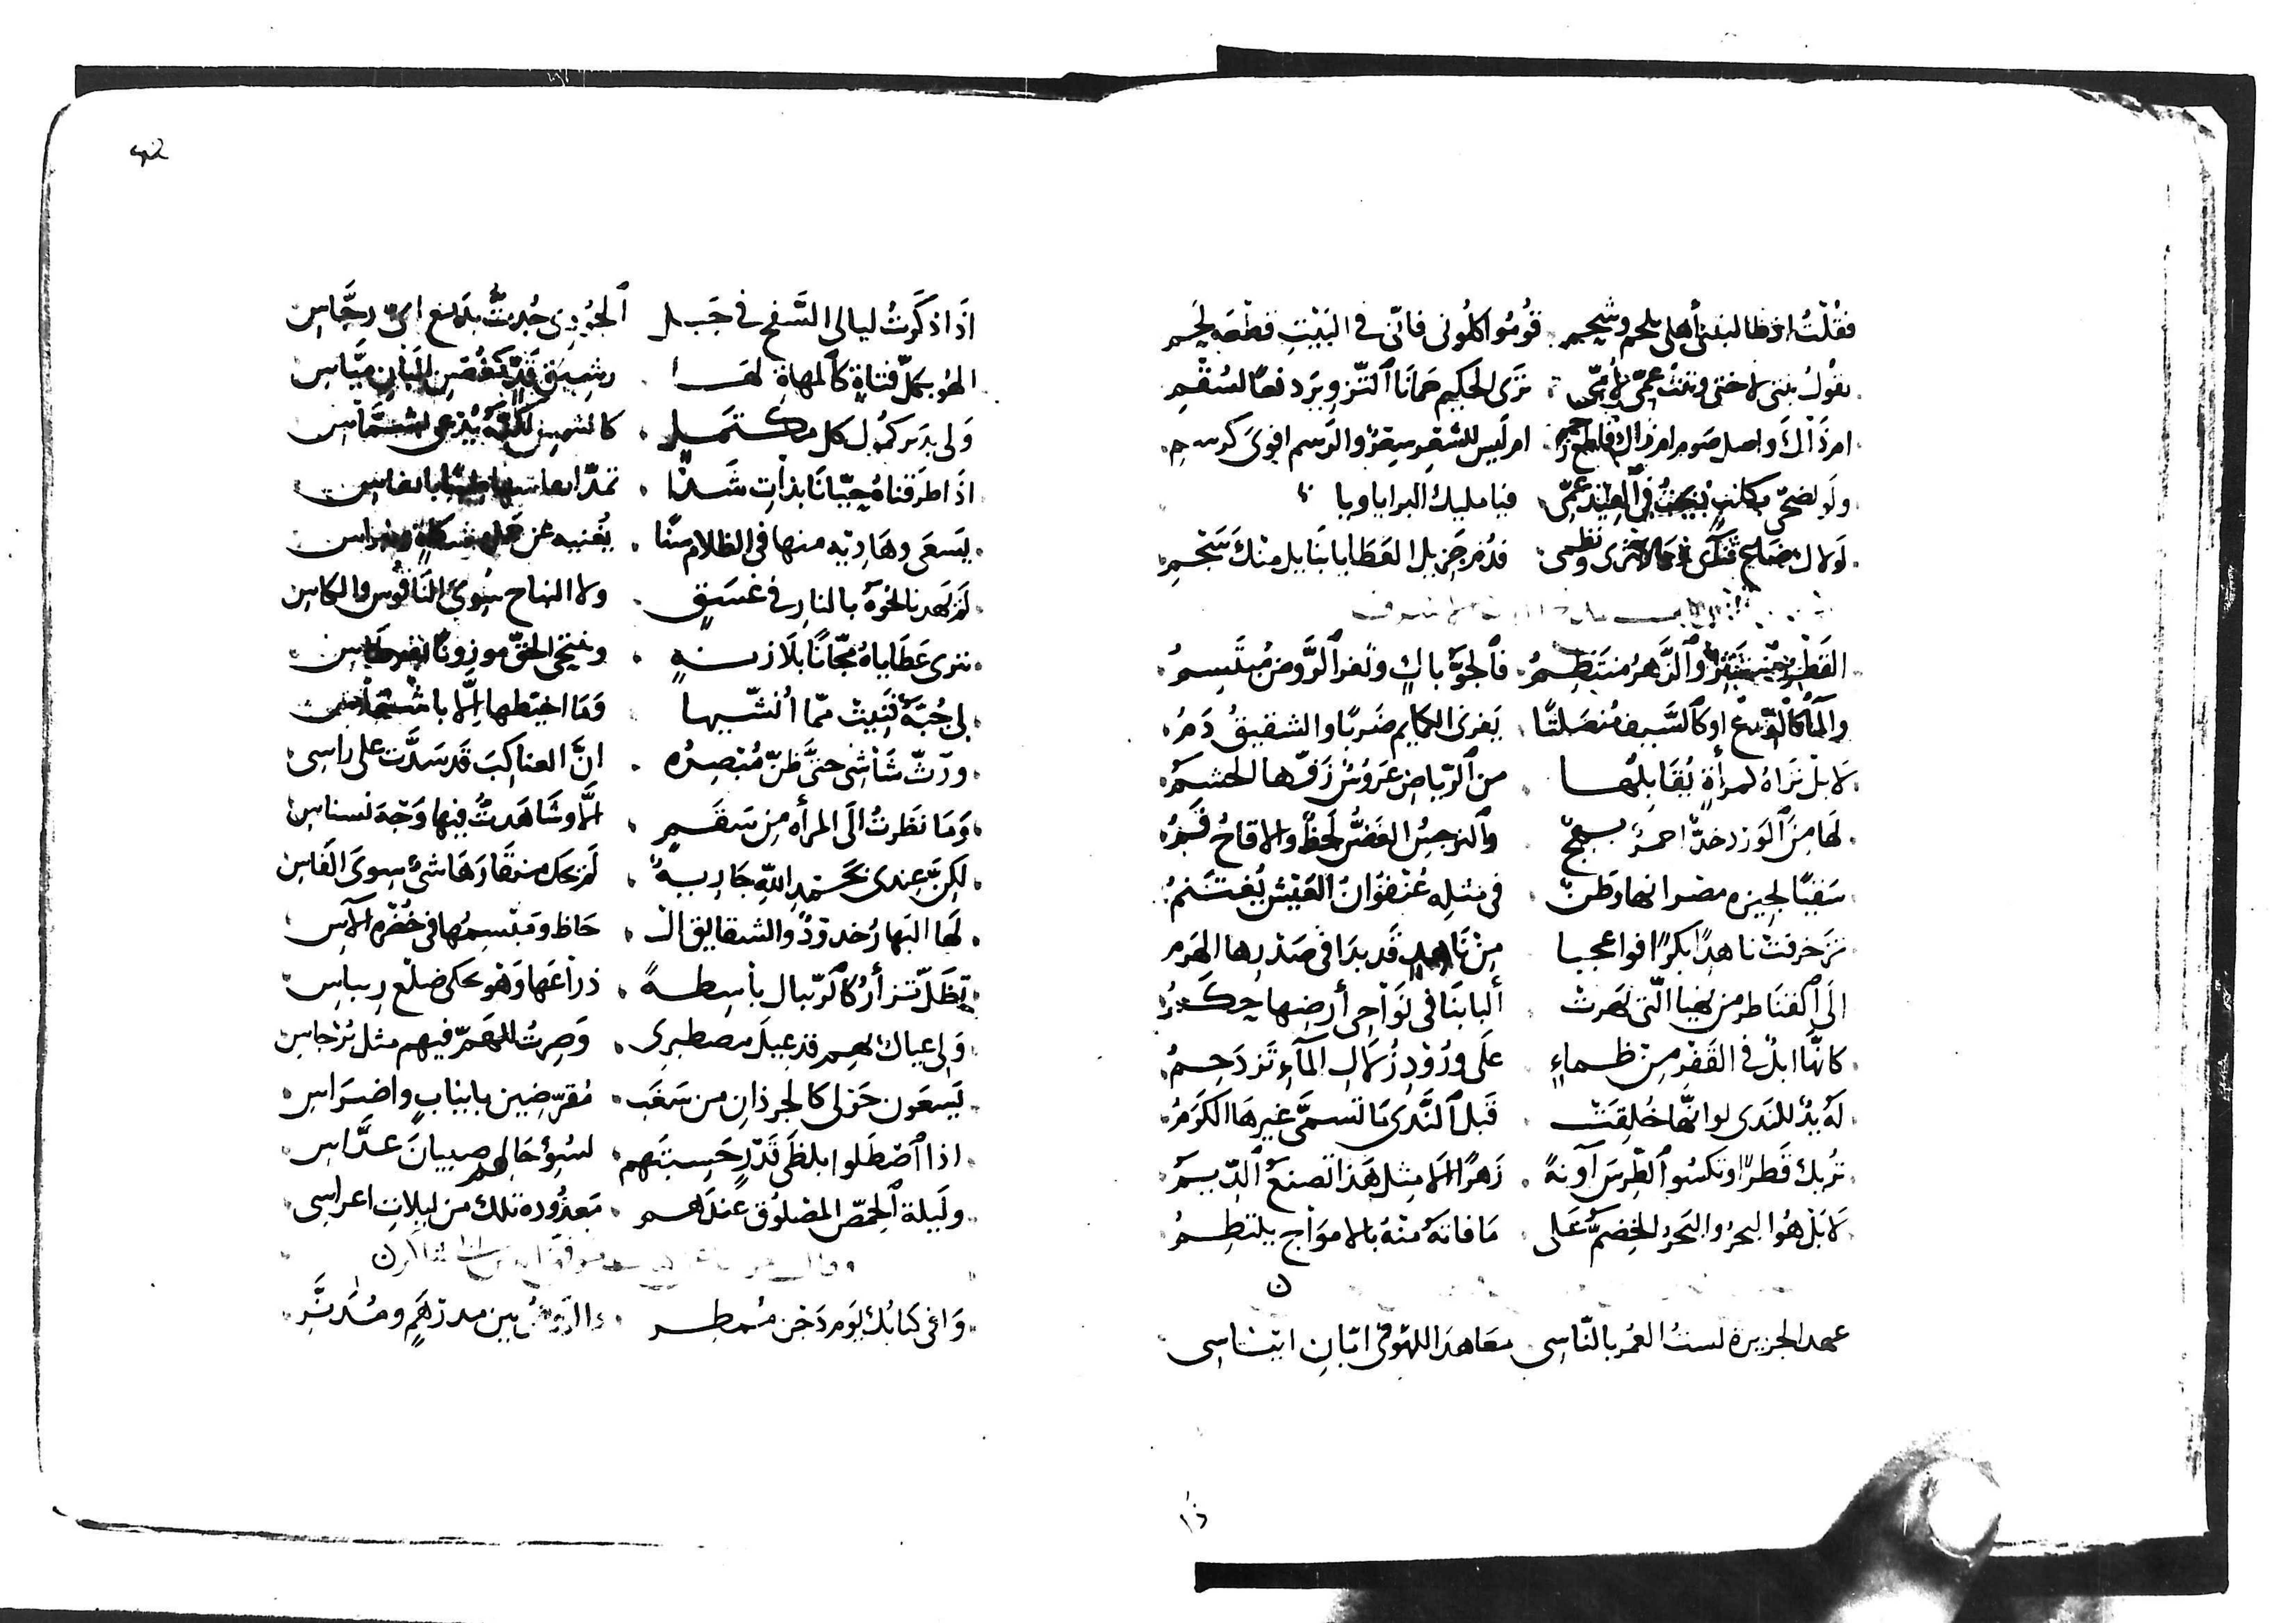 فقُلْتُ اذ طالبتنى أهلى بلحم وشحيم قُومُوا كلُونى فانّى فى البَيْتِ قطعَه لحَم
نقُولُ بنتى لاختى وبنتُ عمّى لأمّى نرَى الحكيم حمَانَا
امر ذَاكَ واصل صَوم امر ذاك قاطع امر ليس للشعر سِعرٌ والرسم اقوىَ كرسم
ولَو يضحّى فيا مليك البرايا ويا
لَولاك ضاع نثرى ونظمى قدُم جزيل العَطَايا بنَايل منك سَجْم
القَطْر منتثر والزَّهرُ منتَظِمُ فالجوّ باكٍ وثغر الرَّوض مُبتَسِمُ
والمآ كالدّرع او كالسَّيف مُنصَلتًا يَفرى الكمايم ضَربًا والشقيقُ دَمُ
لا بلْ تَراهُ كمرآةٍ تُقَابِلُها من الرّياض عَرُوسٌ زَفّها الحشَمُ
لها مِنَ الوَرد خدٌّ احمرٌ بهج والنرجسُ الغَضُّ لَحظٌ والاقاحُ فَمُ
سَقيًا لجيزه مصر انها وطَنٌ فى مثله عُنفُوَانُ العَيْش يُغتَنمُ
تزَخرفت ناهدًا بكرًا فوا عجبا مِنْ نَاهدٍ قَد بدَا فى صَدْرِها الهَرَم
الَى القنَاطر من يُحيا الّتى بَهرتْ ألبابنَا فى نَوَاحِى أرضِها حِكَمُ
كانّها ابلٌ فى القَفْر مِنْ ظماءٍ علَى ورُوْدِ زُلَال المآءِ تَزدَحِمُ
لهُ يدٌ للنَدى لو انّها خُلِقَتْ قَبلَ النَّدَى مَا تسمَّى غيرهَا الكَرَمُ
تُريك قَطرًا وتكسُو الطِّرسَ آونةً زَهرًا الا مِثل هَذَا تَصنعُ الدِّيمُ
لا بَلْ هُوَ البحرُ والبَحرُ الخِضمُّ عَلى مَا فاتَهُ منهُ بالامواج يلتطِمُ
ن
عهد الجزيرة لستُ العُمر بالنّاسِى معَاهدَ اللهو فى ابّانِ ايناسِى
اذَا ذكَرتُ ليالى السَّفح فى جَبل
الهُو بكلّ فتاةٍ كالمهاةِ لهَا رشِيق قَدٍّ كغُصنِ البَانِ ميَّاسِ
وَلى بدَير كمُول كل مكتَملٍ كالشمس لكنّه يُدعى بشمَّاس
اذَا طرَقناهُ حيّانَا بذَاتِ شَذًا
يَسعَى وهَاديه منها فى الظلام سَنًا يُغنيه عن مشكاةٍ ونبراس
لم يَهدنا نحوَهُ بالنار فى غسَقٍ ولا الصاح سِوىَ النَاقُوس والكاس
نرَى عَطَاياهُ مجّانًا بلَا زنةٍ
لى جُبّةٌ نَبتتْ ممّا اُنشّيها وَمَا اخيّطها إلّا
ورثّ شَاشى حتَّى ظنّ مُبْصِرُه انَّ العناكبَ قد سَدَّت على راسى
وَمَا نظرتُ الَى المرأه مِن سَقَمٍ الّا وشَاهَدتُ فيها وَجْهَ نسناس
لكنَّ عِندى بحَمْدِ اللهِ جَاريةً لم يحك منقَارَهَا شئٌ سِوىَ الفاس
لَها البَهارُ خدودٌ والشقايق الـ حاظ ومَبْسِمُها فى خُضره الآس
تظَلّ تَزأرُ كالرّيبال باسِطةً ذراعَها وَهْو يحكى ضلْع ريباس
وَلى عيالٌ بهم قد عيلَ مصطبرى وَصِرتُ للهَمّ فيهم مثل بُرْجاس
يَسعَون حَولى كالجرذانِ من سَغَب مُقرّضين بانيابٍ واضرَاسِ
اذا اصْطَلوا بلظَى قَدْرٍ حَسِبتَهم لسُوءِ حَالهم صبيانَ عدَّاس
ولَيلة الحِمّص المصْلُوق عندَهم مَعدُوده تلك من ليلاتِ اعراسى
وَافى كتابُكَ يَومَ دَجْن مُمطِر والروضُ بين مدرهَمٍ ومُدَنَّر